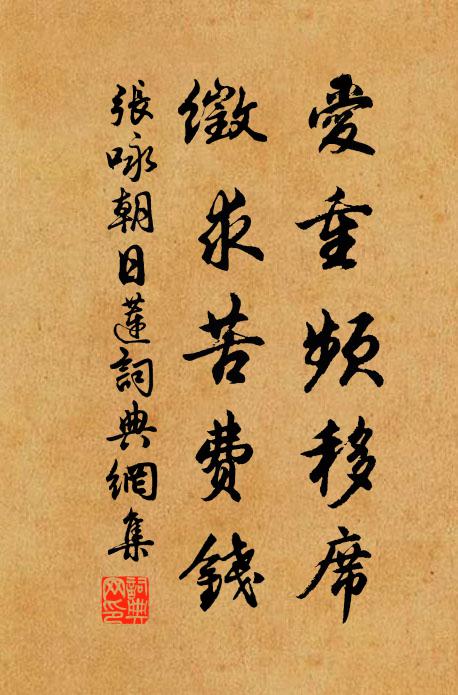 愛重頻移席
徵求苦費錢
張咏朝日蓮詞典網集
詞典網印